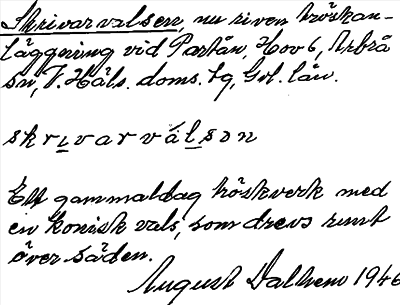 Skrivarvalsen, nu riven tröskan-
läggning vid Partån, Hov 6, Arbrå
sn, V. Häls. doms. tg, Gvl. län.
skrivarvälsən
Ett gammaldag tröskverk med
en konisk vals, som drevs runt
över säden.
August Dalhem 1946